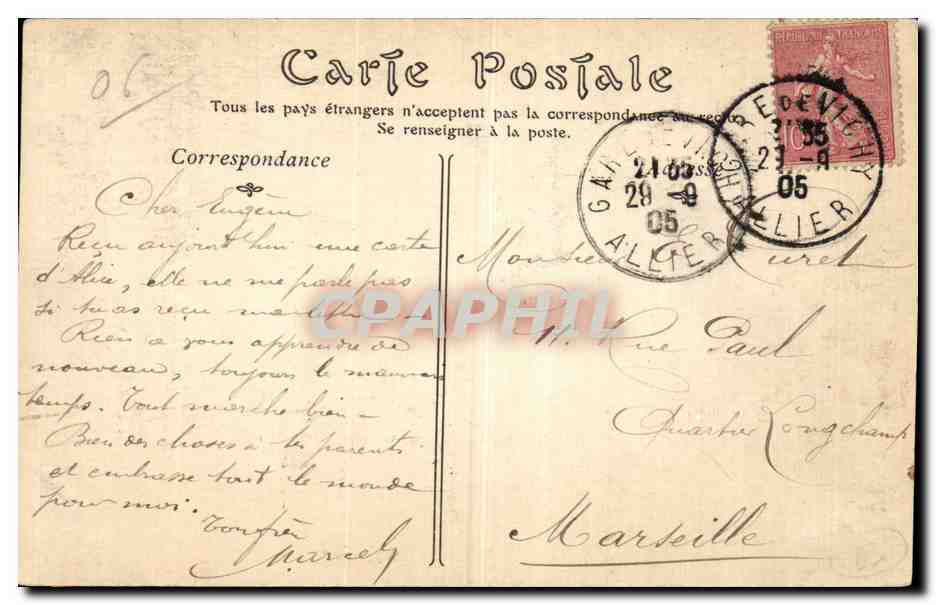 06
Carte Postale
Tous les pays étrangers n'acceptent pas la correspondance au recto
Se renseigner à la poste.
Correspondance
Adresse
REPUBLIQUE FRANÇAISE
10
GARE DE VICHY
21 35
29 -9
05
ALLIER
GARE DE VICHY
21 35
29 -9
05
ALLIER
Cher Eugène
Reçu aujourd'hui une carte
d'Alice, elle ne me parle pas
si tu as reçu ma lettre
Rien à vous apprendre de
nouveau, toujours le mauvais
temps. Tout marche bien -
Bien des choses à tes parents
et embrasse tout le monde
pour moi.
Ton frère
Marcel
Monsieur E. Curet
11. Rue Paul
Quartier Longchamp
Marseille
CPAPHIL